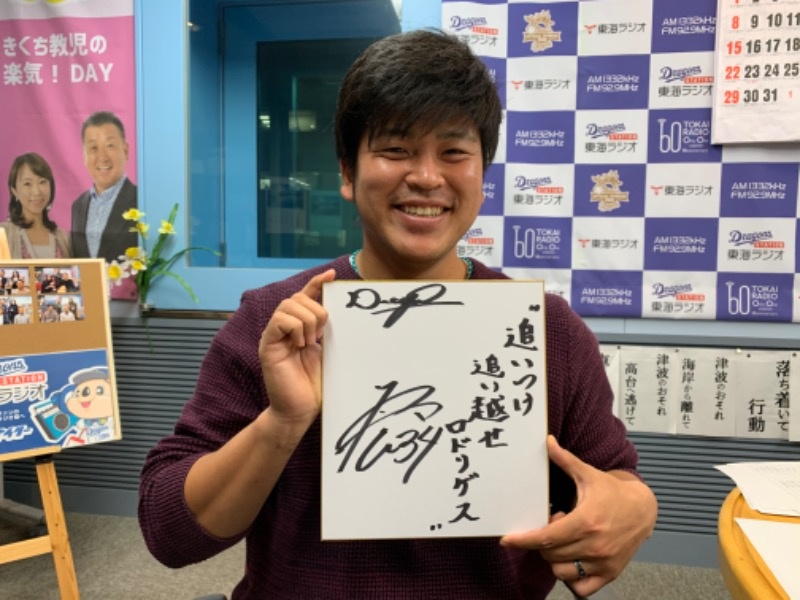 きくち教児の
楽気！DAY
Dragons
STATION
ラジオ
Dragons
34
"追いつけ
追い越せ
ロドリゲス"
Dragons STATION
東海ラジオ
東海ラジオ
AM1332kHz
FM92.9MHz
TOKAI RADIO
8 9 10 11
15 16 17 18
22 23 24 25
29 30 31 1
落ち着いて
行動
津波のおそれ
海岸から離れて
津波のおそれ
高台へ逃げて